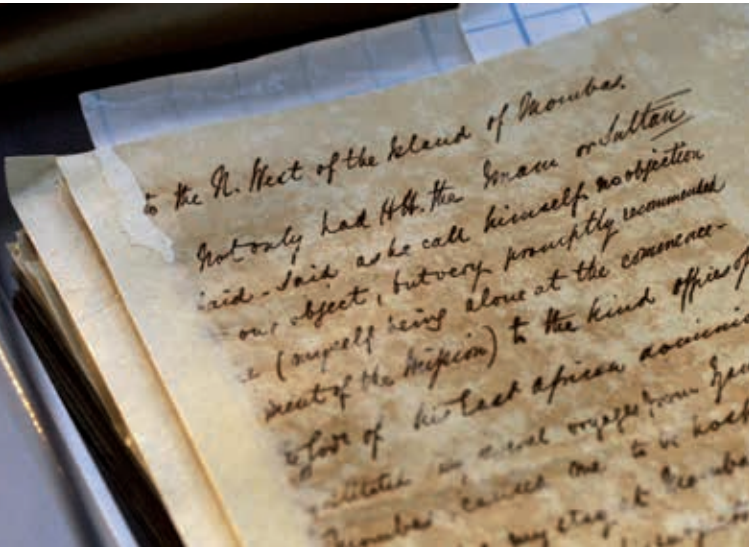 to the N. West of the Island of Mombas.
Not only had HH. the Imam or Sultan
Said-Said as he call himself, no objection
our object, but very promptly recommended
(myself being alone at the commence-
ment of the Mission) to the kind offices of
of his East African
several voyages from
Mombas causes me to be
my stay at Mombas